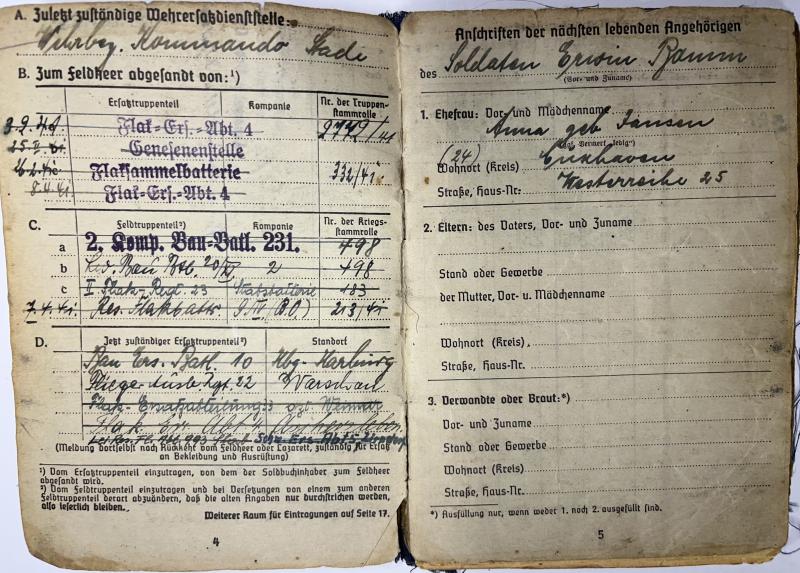 A. Zuletzt zuständige Wehrersatzdienststelle:
Wehrbez. Kommando Stade
B. Zum Feldheer abgesandt von:¹)
Ersatztruppenteil Kompanie Nr. der Truppenstammrolle
Flak-Ers.-Abt. 4
Genesenenstelle
Flaksammelbatterie 332/41
8.4.41 Flak-Ers.-Abt. 4
C. Feldtruppenteil²) Kompanie Nr. der Kriegsstammrolle
a 2. Komp. Bau-Batl. 231. 498
b 2 498
c II. Flak-Regt. 23 Stabsbatterie 183
7.4.41 Res. Flakbattr. 213/41
D. Jetzt zuständiger Ersatztruppenteil²) Standort
Bau Ers. Batl. 10 Hbg-Harburg
22 Warschau
Flak-Ersatzabteilung
Flak Ers Abt 4
(Meldung dortselbst nach Rückkehr vom Feldheer oder Lazarett, zuständig für Ersatz
an Bekleidung und Ausrüstung)
¹) Vom Ersatztruppenteil einzutragen, von dem der Soldbuchinhaber zum Feldheer
abgesandt wird.
²) Vom Feldtruppenteil einzutragen und bei Versetzungen von einem zum anderen
Feldtruppenteil derart abzuändern, daß die alten Angaben nur durchstrichen werden,
also leserlich bleiben.
Weiterer Raum für Eintragungen auf Seite 17.
4
Anschriften der nächsten lebenden Angehörigen
des Soldaten Erwin Ramm
(Vor- und Zuname)
1. Ehefrau: Vor- und Mädchenname
Anna geb Jansen
(ggf. Vermerk „ledig")
(24)
Wohnort (Kreis) Cuxhaven
Straße, Haus-Nr. Westerreihe 25
2. Eltern: des Vaters, Vor- und Zuname
Stand oder Gewerbe
der Mutter, Vor- u. Mädchenname
Wohnort (Kreis)
Straße, Haus-Nr.
3. Verwandte oder Braut:*)
Vor- und Zuname
Stand oder Gewerbe
Wohnort (Kreis)
Straße, Haus-Nr.
*) Ausfüllung nur, wenn weder 1. noch 2. ausgefüllt sind.
5